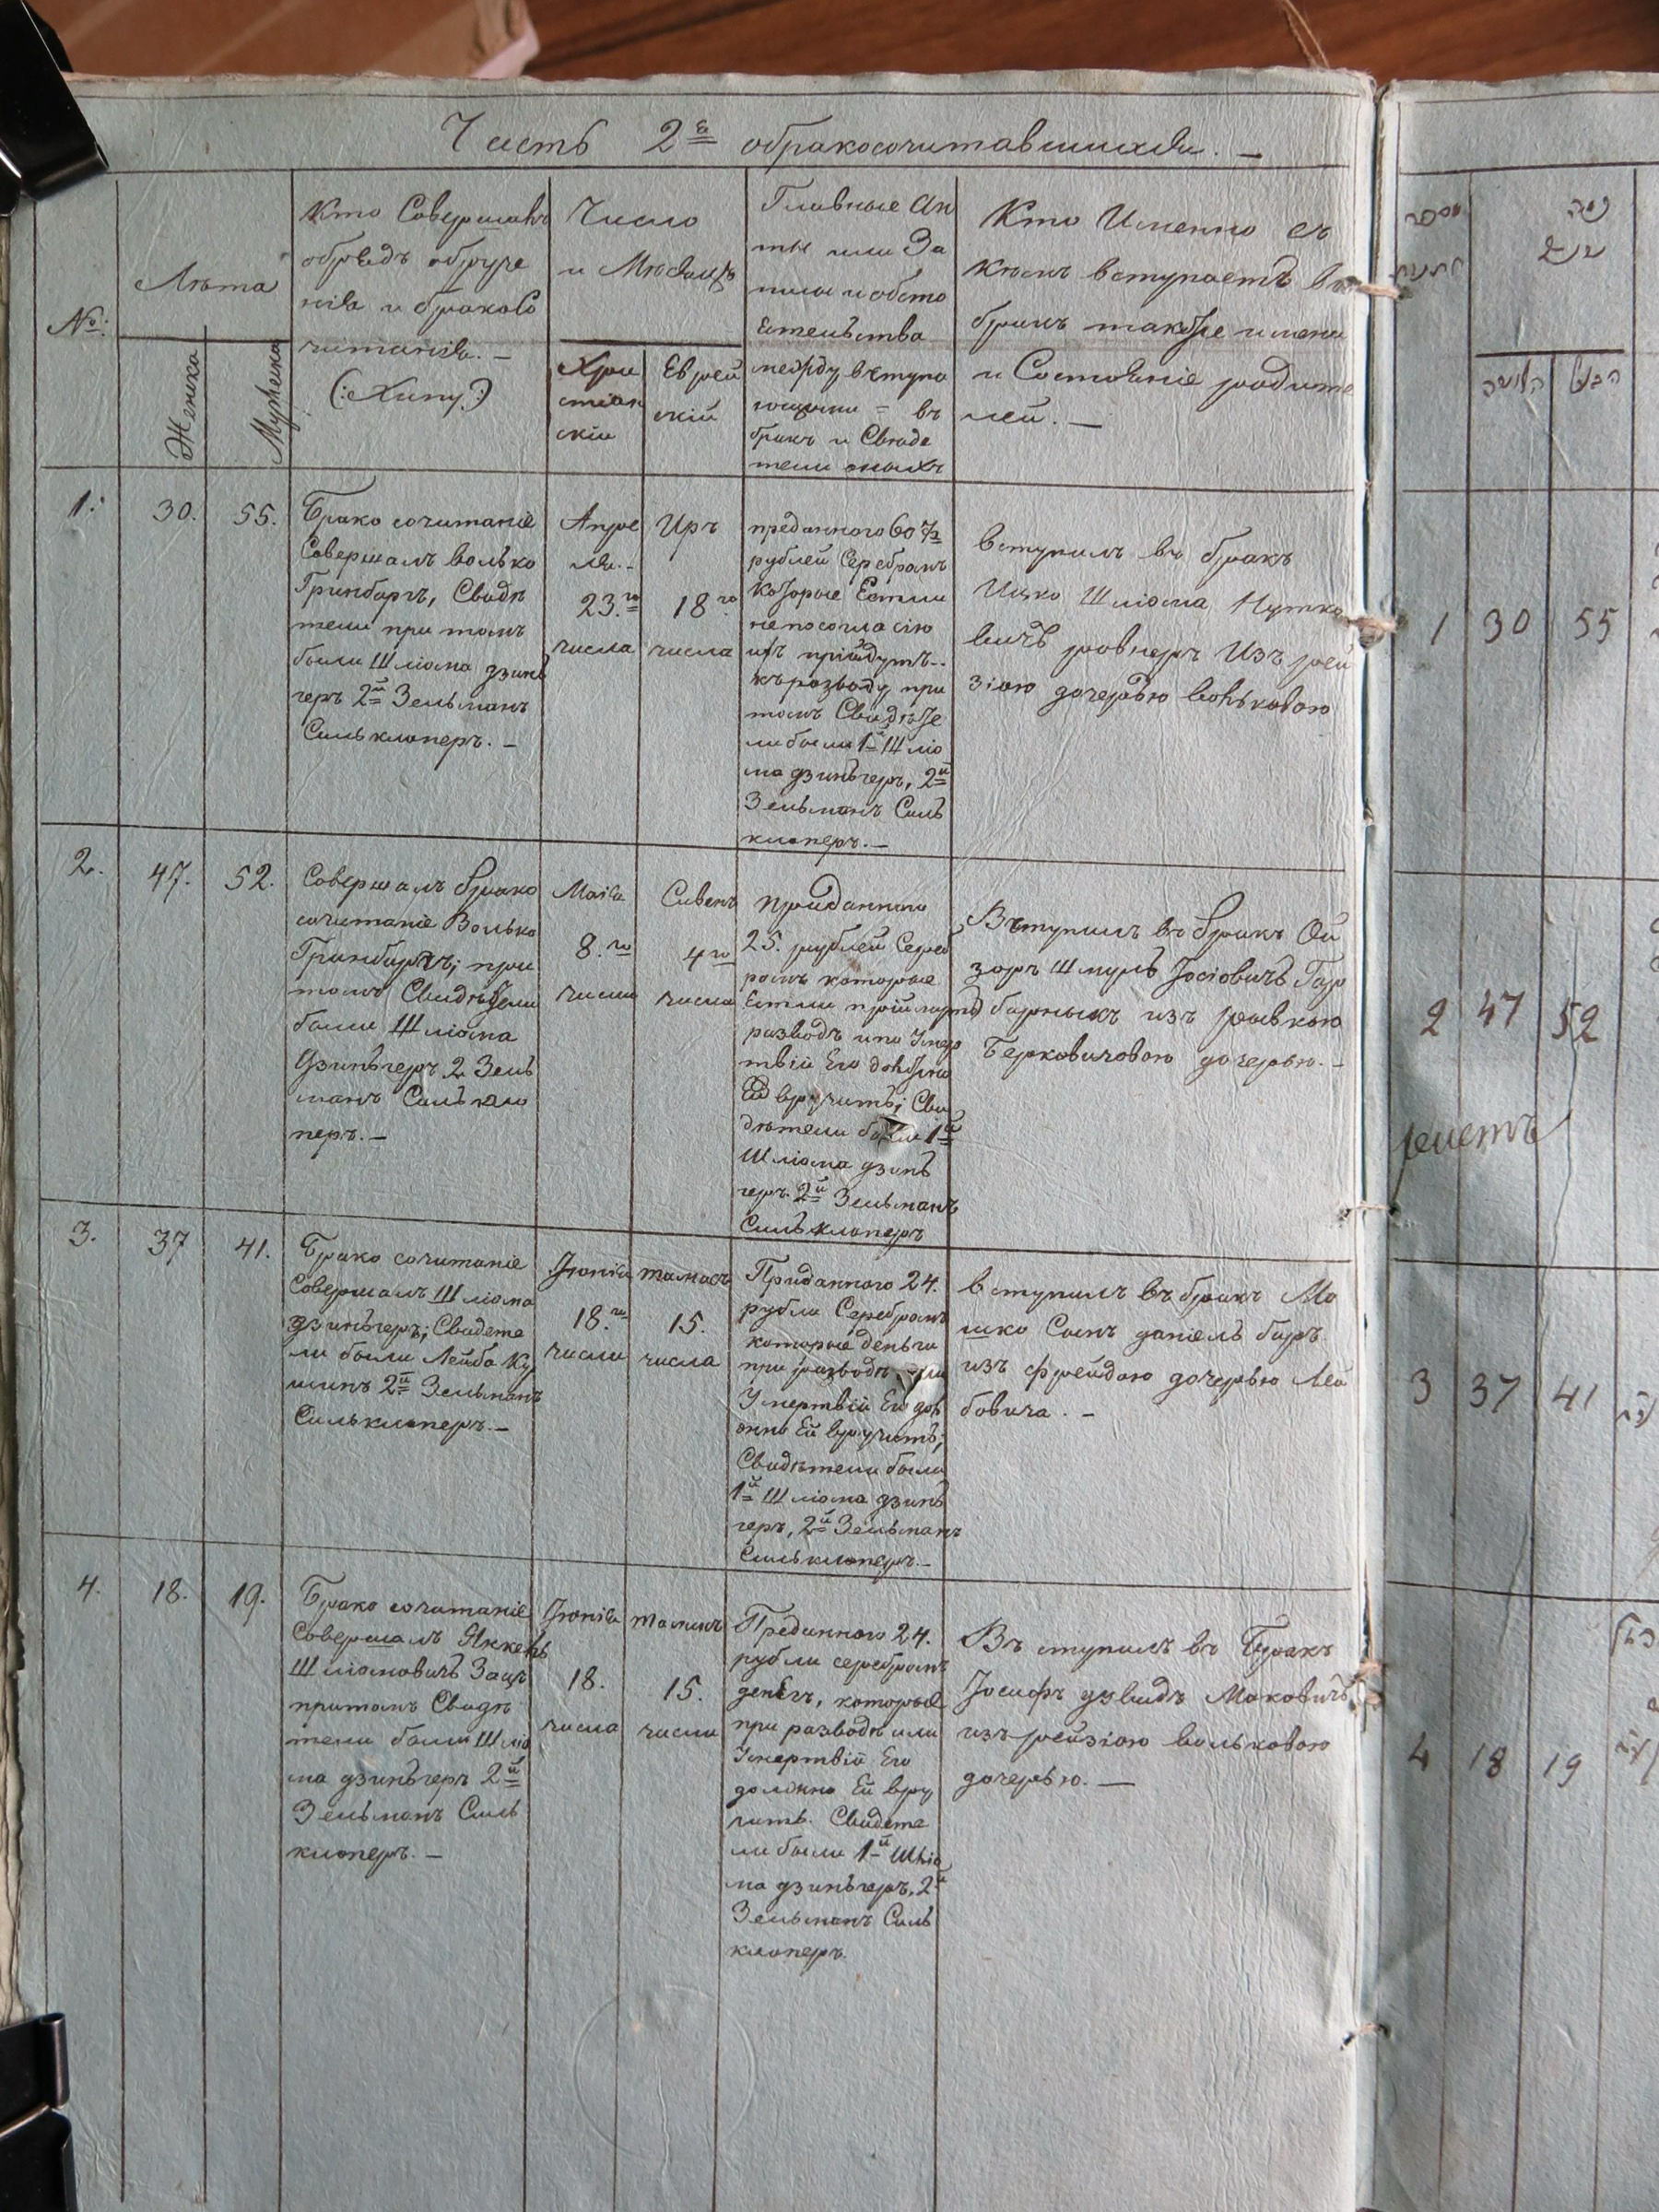 Часть 2я обракосочитавшихся. —
№:
Лѣта
Женска
Мужеска
Кто Совершалъ
обрядъ обруче
нія и бракосо
читанія. —
(:Хипу:)
Число
и Мѣсяцъ
Хри
стіан
скіи
Еврей
скій
Главные ак
ты или За
писи и обсто
ятельства
между вступа
ющими = въ
бракъ и Свиде
тели оныхъ
Кто Именно съ
кѣмъ вступаетъ въ
бракъ также имена
и Состояніе родите
лей. —
1.
30.
55.
Брако сочитаніе
Совершалъ Волько
Гринбаргъ, Свидѣ
тели при томъ
были Шліома дзинь
геръ 2й Зельманъ
Силькляперъ. —
Апре
ля. -
23.го
числа
Иръ
18го
числа
преданного 60 7/2
рублей Серебромъ
Которые Естли
непосогласію
ихъ прійдутъ..
къ разводу при
томъ Свидѣте
ли были 1й Шліо
ма дзиньгеръ, 2й
Зельманъ Силь
кляперъ. —
вступилъ въ бракъ
Ицко Шліома Нутко
вичъ ровнеръ Изъ рей
зіою дочерью Вольковою
2.
47.
52.
Совершалъ брако
сочитаніе Волько
Гринбаргъ; при
томъ Свидѣтели
были Шліома
Дзиньгеръ 2 Зель
манъ Силькля
перъ. —
Маія
8.го
числа
Сивенъ
4го
числа
приданного
25. рублей Сереб
ромъ которые
Естли
разводъ или Умер
твіи Его должно
Ей вручить; Сви
дѣтели были 1й
Шліома дзинь
геръ 2й Зельманъ
Силькляперъ
Вступилъ въ бракъ Ой
зоръ Шмуль Іосіовичъ Гар
барныкъ изъ ривкою
Берковичовою дочерью. -
3.
37
41.
Брако сочитаніе
Совершалъ Шліома
дзиньгеръ; Свидете
ли были Лейба Ку
шикъ 2й Зельманъ
Силькляперъ. —
Іюнія
18.го
числа
тамасъ
15.
числа
Приданного 24.
рубли Серебромъ
которые деньги
при разводѣ или
Умертвіи Его дол
жно Ей вручить;
Свидѣтели были
1й Шліома дзинь
геръ, 2й Зельманъ
Силькляперъ. —
вступилъ въ бракъ Мо
шко Сынъ даніель баръ
изъ фрейдою дочерью Лей
бовича. -
4.
18.
19.
Брако сочитаніе
Совершалъ Янкель
Шліомовичъ Зацъ
притомъ Свидѣ
тели были Шліо
ма дзиньгеръ 2й
Зельманъ Силь
кляперъ. —
Іюнія
18.
числа
тамасъ
15.
числа
Преданного 24.
рубли серебромъ
денегъ, которые
при разводѣ или
Умертвіи Его
должно Ей вру
чить. Свидете
ли были 1й Шліо
ма дзиньгеръ, 2й
Зельманъ Силь
кляперъ.
Въ ступилъ въ Бракъ
Іосифъ дэвидъ Маковичъ
изъ рейзіою вольковою
дочерью. —
1 30 55
2 47 52
3 37 41
4 18 19